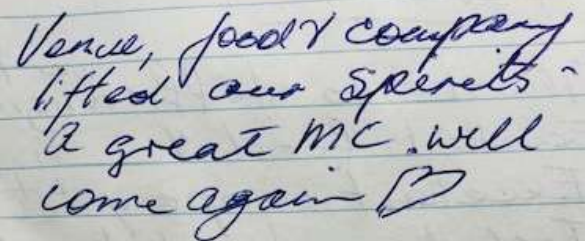 Venue, food & company
lifted our spirits -
a great MC. will
come again ♡